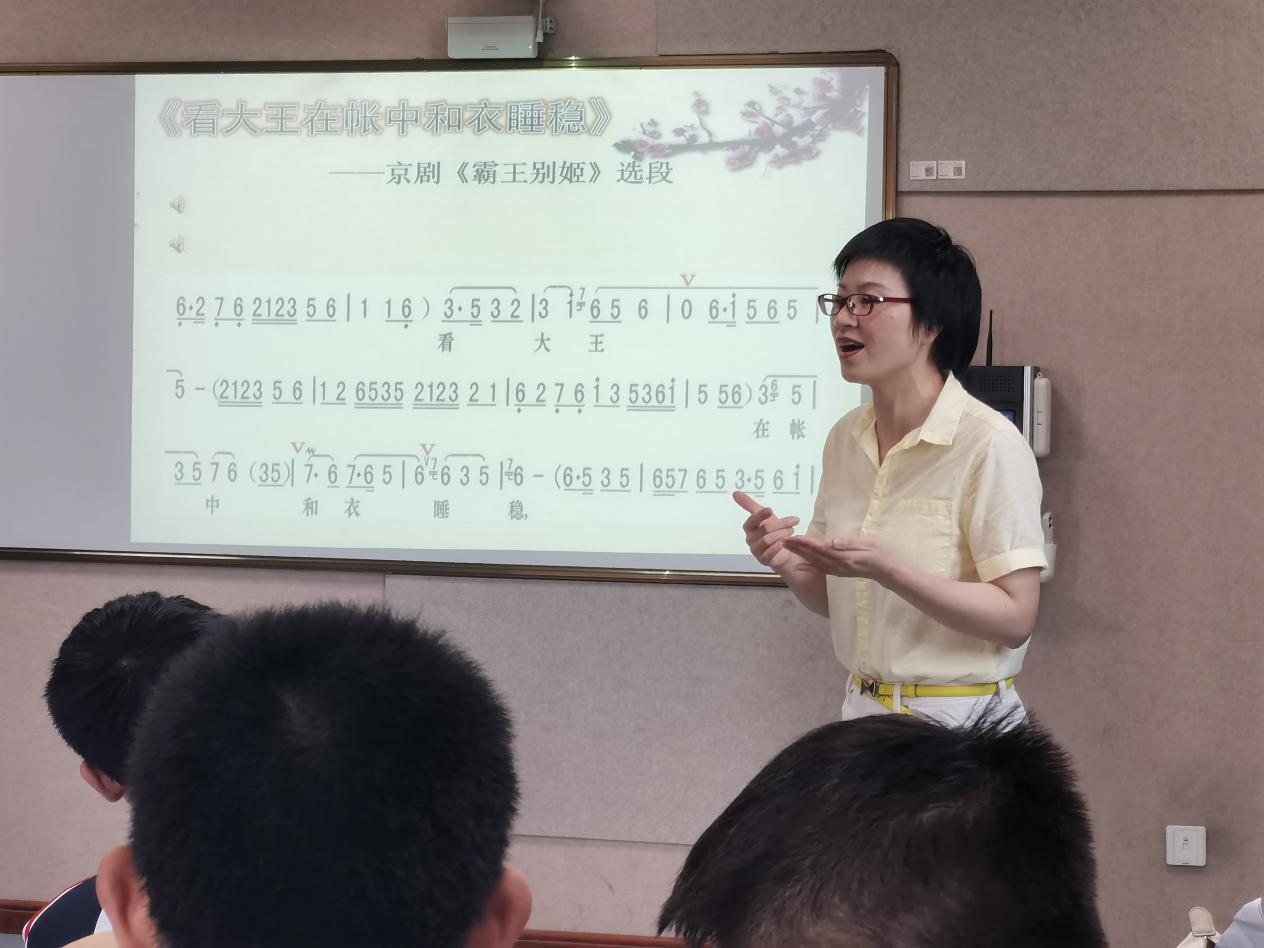 《看大王在帐中和衣睡稳》
——京剧《霸王别姬》选段
6·2 76 2123 56 | 1 16 ) 3·5 32 | 3 i 7 65 6 | 0 6·i 565 |
看 大 王
5 - (2123 56 | 12 6535 2123 21 | 62 76 i3 536i | 5 56) 3 6 5 |
在 帐
35 76 (35) | 7· 6 7·6 5 | 6 7 6 3 5 | 7 6 - (6·5 35 | 657 65 3·5 6i |
中 和 衣 睡 稳,